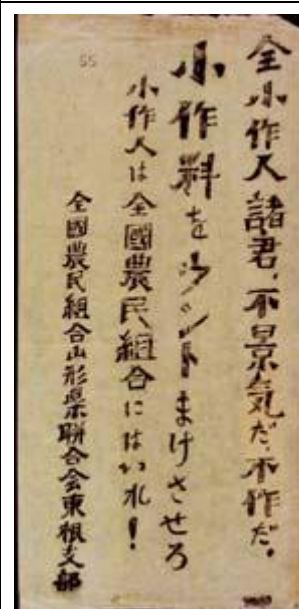 全小作人諸君、不景気だ、不作だ。
小作料をウントまけさせろ
小作人は全國農民組合にはいれ！
全國農民組合山形県聯合会東根支部
55